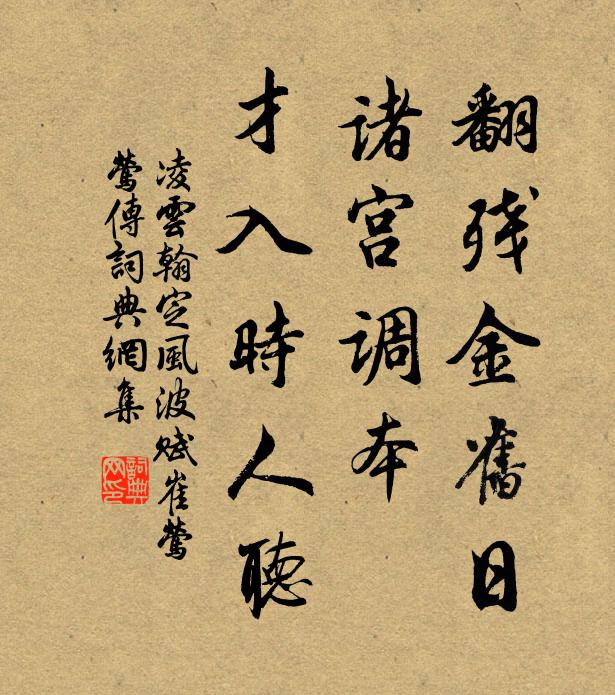 翻残金舊日
诸宫调本
才入時人聽
凌雲翰定風波賦崔鶯
鶯傳詞典網集
詞典
网印